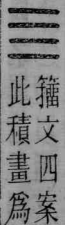 亖
籕文四案
此積畫爲